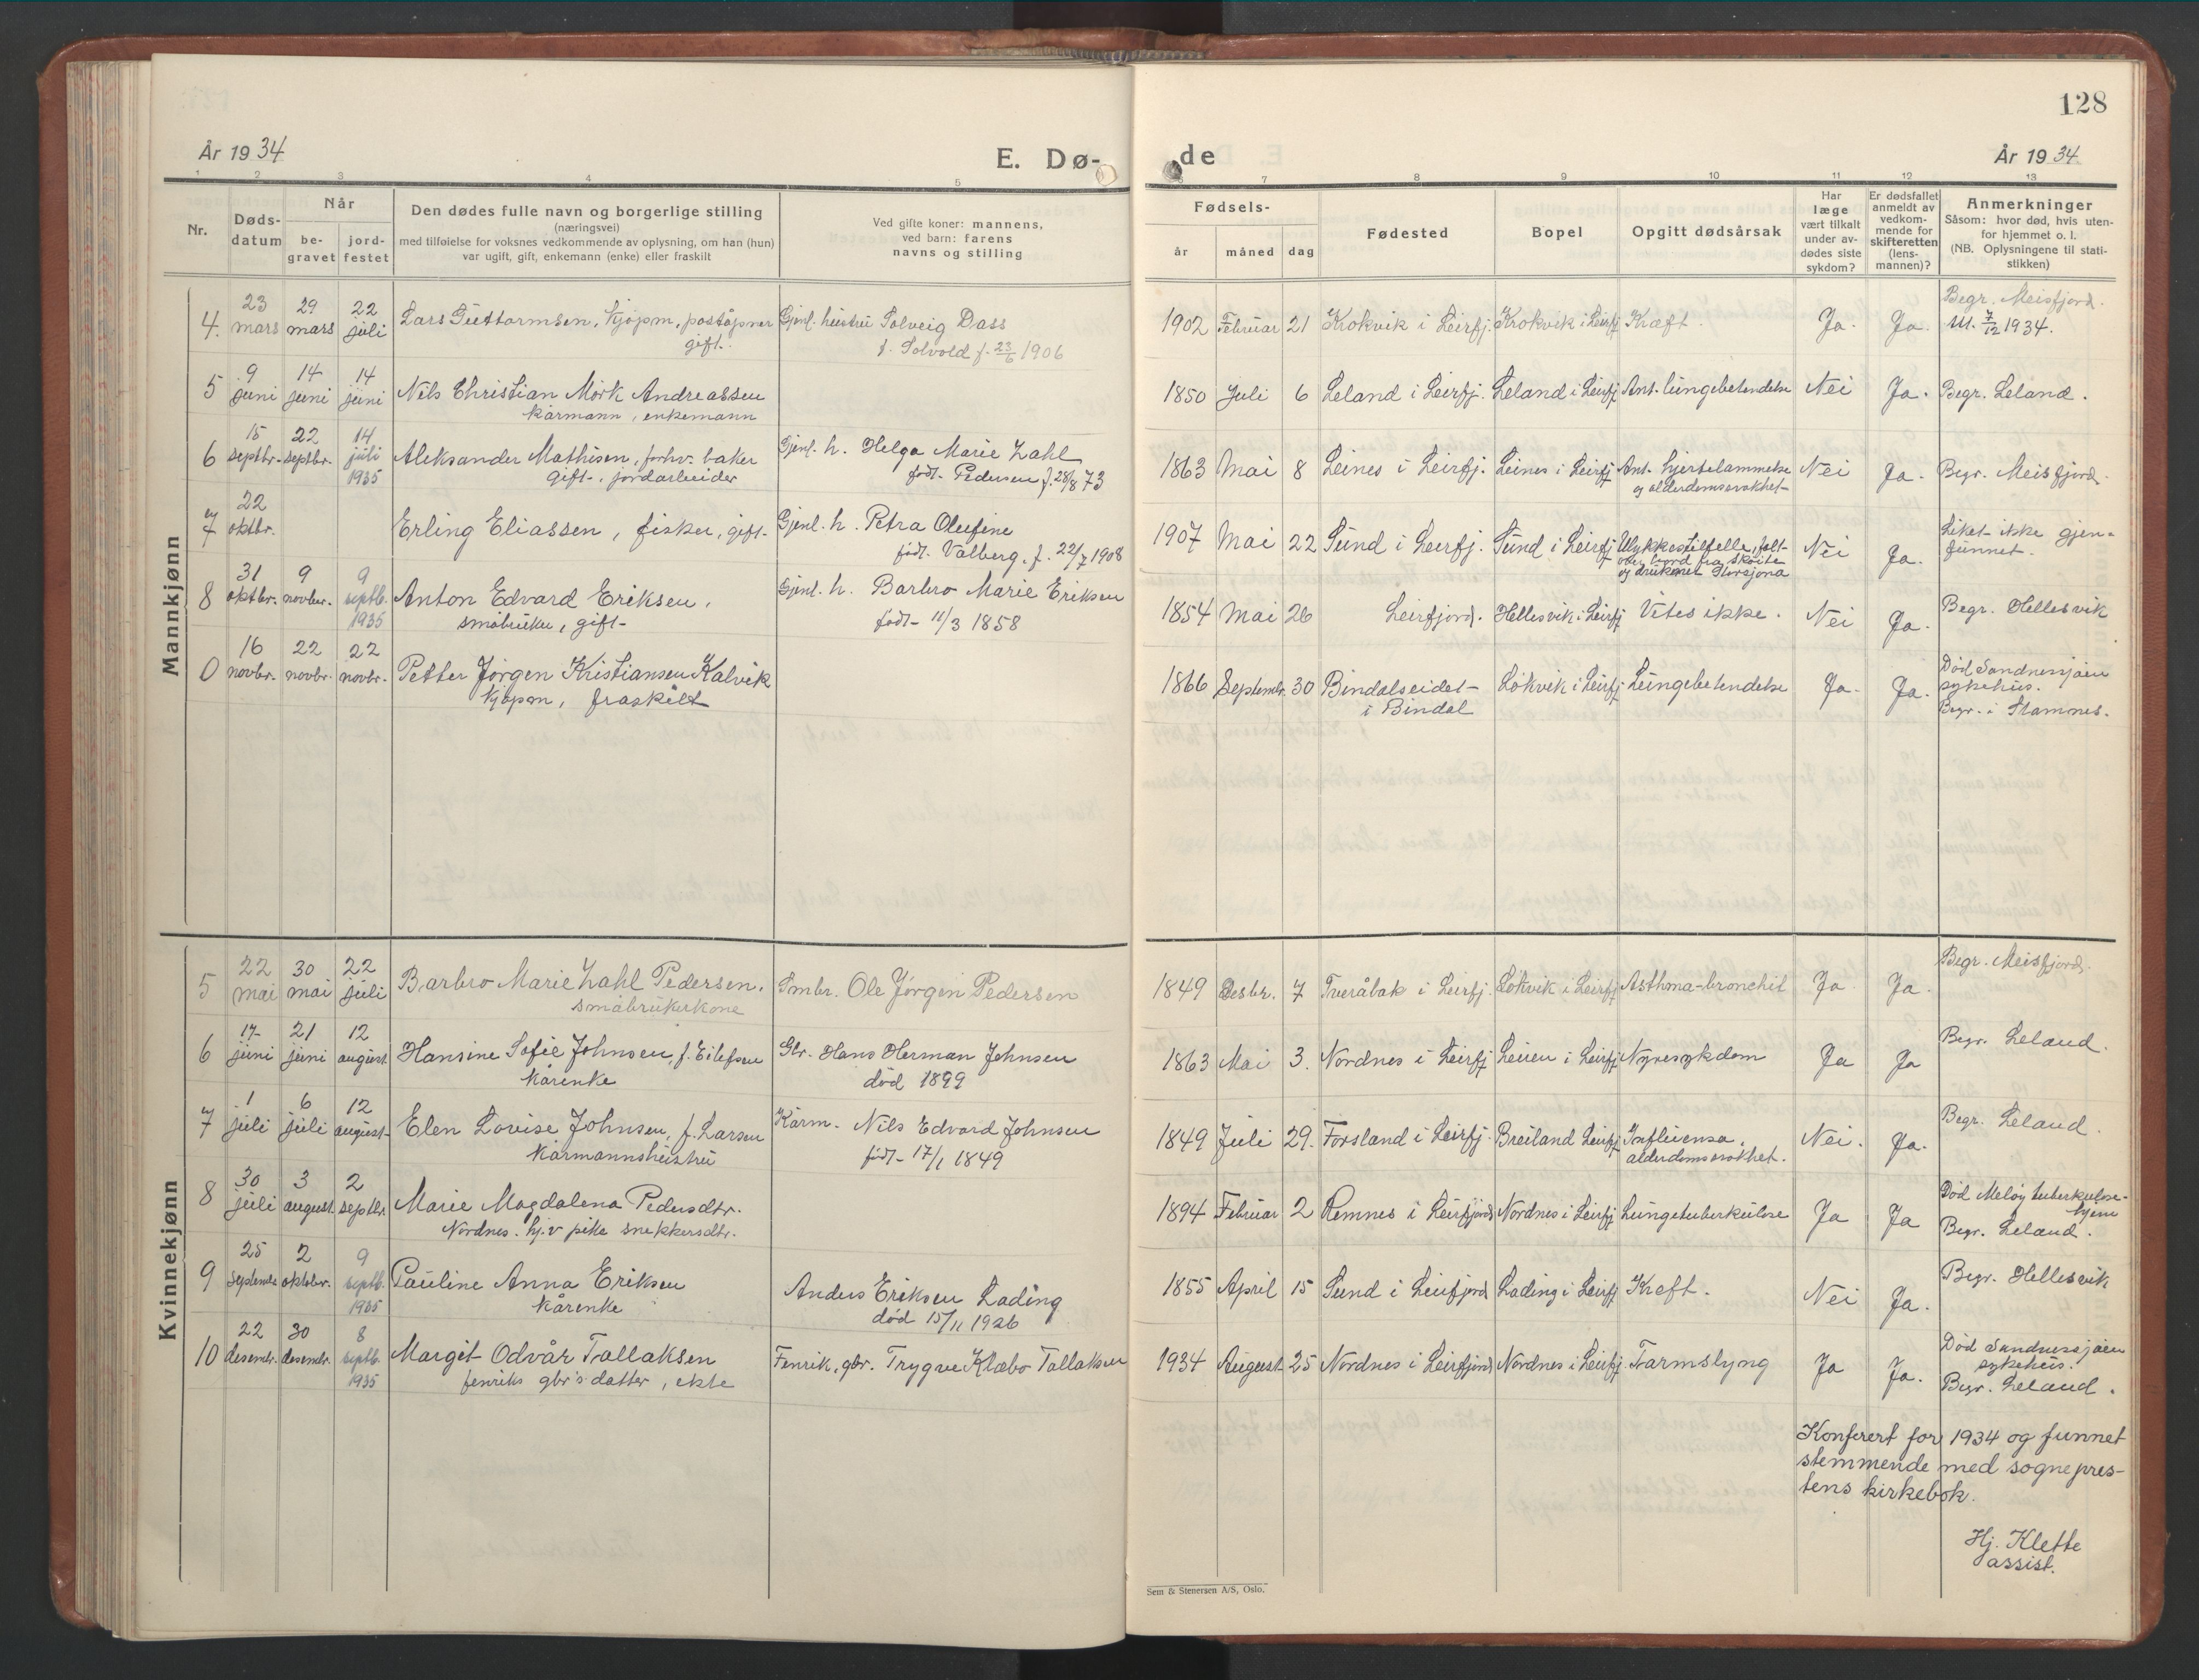 128
År 1934
E. Dø-
de
År 1934
1 2 3 4 5 6 7 8 9 10 11 12 13
Nr.
Døds-
datum
Når
be-
gravet
jord-
festet
Den dødes fulle navn og borgerlige stilling
(næringsvei)
med tilføielse for voksnes vedkommende av oplysning, om han (hun)
var ugift, gift, enkemann (enke) eller fraskilt
Ved gifte koner: mannens,
ved barn: farens
navns og stilling
Fødsels-
år måned dag
Fødested
Bopel
Opgitt dødsårsak
Har
læge
vært tilkalt
under av-
dødes siste
sykdom?
Er dødsfallet
anmeldt av
vedkom-
mende for
skifteretten
(lens-
mannen)?
Anmerkninger
Såsom: hvor død, hvis uten-
for hjemmet o. l.
(NB. Oplysningene til stati-
stikken)
Mannkjønn
4. 23 mars 29 mars 22 juli
Lars Guttormsen, kjøpm, poståpner
gift.
Gjenl. hustru Solveig Dass
f. Solvold f. 23/6 1906
1902 Februar 21 Krokvik i Leirfj. Krokvik i Leirfj Kræft. Ja. Ja.
Begr. Meisfjord.
Ut. 7/12 1934.
5 9 juni 14 juni 14 juni
Nils Christian Mørk Andreassen
kårmann, enkemann
1850 Juli 6 Leland i Leirfj. Leland i Leirfj Ant. lungebetendelse Nei Ja. Begr. Leland.
6 15 septbr. 22 septbr. 14 juli 1935
Aleksander Mathisen, forhv. baker
gift, jordarbeider
Gjenl. h. Helga Marie Zahl
født Pedersen f. 28/8 73
1863 Mai 8 Leines i Leirfj. Leines i Leirfj Ant. hjertelammelse
og alderdomssvakhet
Nei Ja. Begr. Meisfjord.
7 22 oktbr.
Erling Eliassen, fisker, gift
Gjenl. h. Petra Olufine
født Valberg, f. 22/7 1908
1907 Mai 22 Sund i Leirfj. Sund i Leirfj Ulykkestilfelle, falt
over bord fra skøite
og druknet Storsjona
Nei Ja.
Liket ikke gjen-
funnet.
8 31 oktbr. 9 novbr. 9 septb. 1935
Anton Edvard Eriksen,
småbruker, gift
Gjenl. h. Barbro Marie Eriksen
født 11/3 1858
1854 Mai 26 Leirfjord. Hellesvik i Leirfj Vites ikke. Nei Ja. Begr. Hellesvik
0 16 novbr. 22 novbr. 22 novbr.
Petter Jørgen Kristiansen Kalvik
kjøpm, fraskilt
1866 Septembr. 30 Bindalseidet
i Bindal
Løkvik i Leirfj Lungebetendelse Ja. Ja.
Død Sandnessjøen
sykehus.
Begr. i Stamnes.
Kvinnekjønn
5 22 mai 30 mai 22 juli
Barbro Marie Zahl Pedersen.
småbrukerkone
Smbr. Ole Jørgen Pedersen
1849 Desbr. 7 Tveråbak i Leirfj. Løkvik i Leirfj Asthma-bronchit Ja Ja. Begr. Meisfjord.
6 17 juni 21 juni 12 august
Hansine Sofie Johnsen, f. Eilefsen
kårenke
Gbr. Hans Herman Johnsen
død 1899
1863 Mai 3. Nordnes i Leirfj Leiren i Leirfj Nyresykdom Ja Ja Begr. Leland.
7 1 juli 6 juli 12 august
Elen Lovise Johnsen, f. Larsen
kårmannshustru
Kårm. Nils Edvard Johnsen
født 17/1 1849
1849 Juli 29. Forsland i Leirfj. Breiland Leirfj Influensa,
alderdomssvakhet.
Nei. Ja. Begr. Leland.
8 30 juli 3 august 2 septbr.
Marie Magdalena Pedersdtr.
Nordnes. hj.v pike snekkersdtr.
1894 Februar 2 Remnes i Leirfjord Nordnes i Leirfj Lungetuberkulose Ja Ja
Død Meløy tuberkulose-
hjem
Begr. Leland.
9 25 Septembr 2 oktober. 9 septb. 1935
Pauline Anna Eriksen
kårenke
Anders Eriksen Lading
død 15/11 1926
1855 April 15 Sund i Leirfjord Lading i Leirfj Kreft. Nei Ja. Begr. Hellesvik
10 22 desembr. 30 desembr. 8 septb. 1935
Margit Odvår Tallaksen
fenriks gbr's datter, ekte
Fenrik, gbr. Trygve Klæbo Tallaksen
1934 August 25 Nordnes i Leirfjord Nordnes i Leirfj. Tarmslyng Ja Ja.
Død Sandnessjøen
sykehus.
Begr. Leland.
Konferert for 1934 og funnet
stemmende med sognepres-
tens kirkebok.
Hj. Klette
assist.
Sem & Stenersen A/S, Oslo.